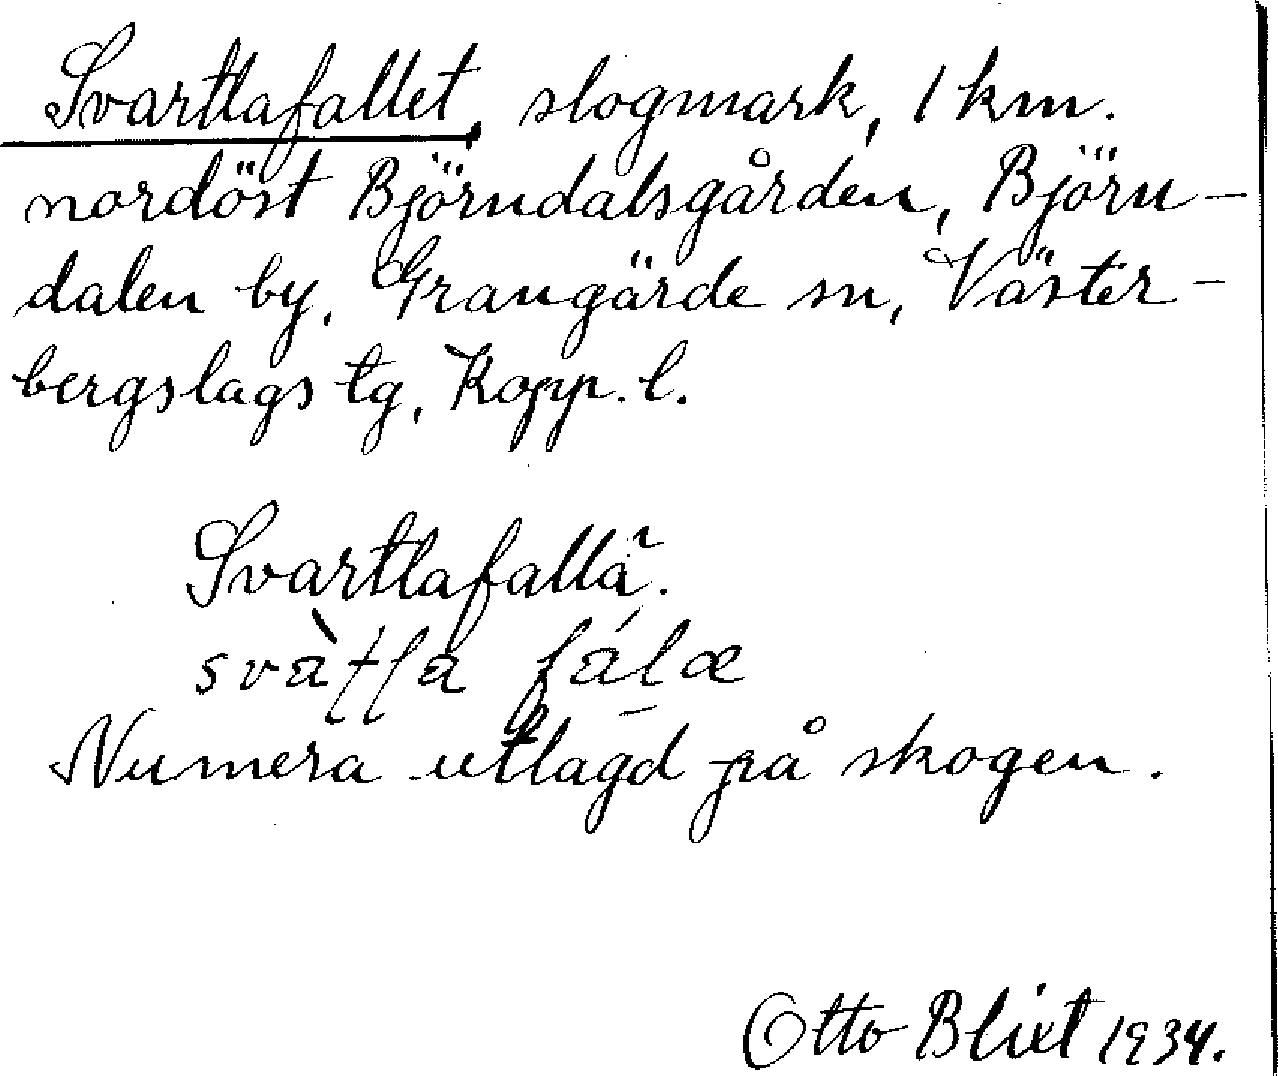 Svartlafallet, slogmark, 1 km.
nordöst Björndalsgården, Björn-
dalen by, Grangärde sn, Väster-
bergslags tg, Kopp. l.
Svartlafallä.
Numera utlagd på skogen.
Otto Blixt 1934.